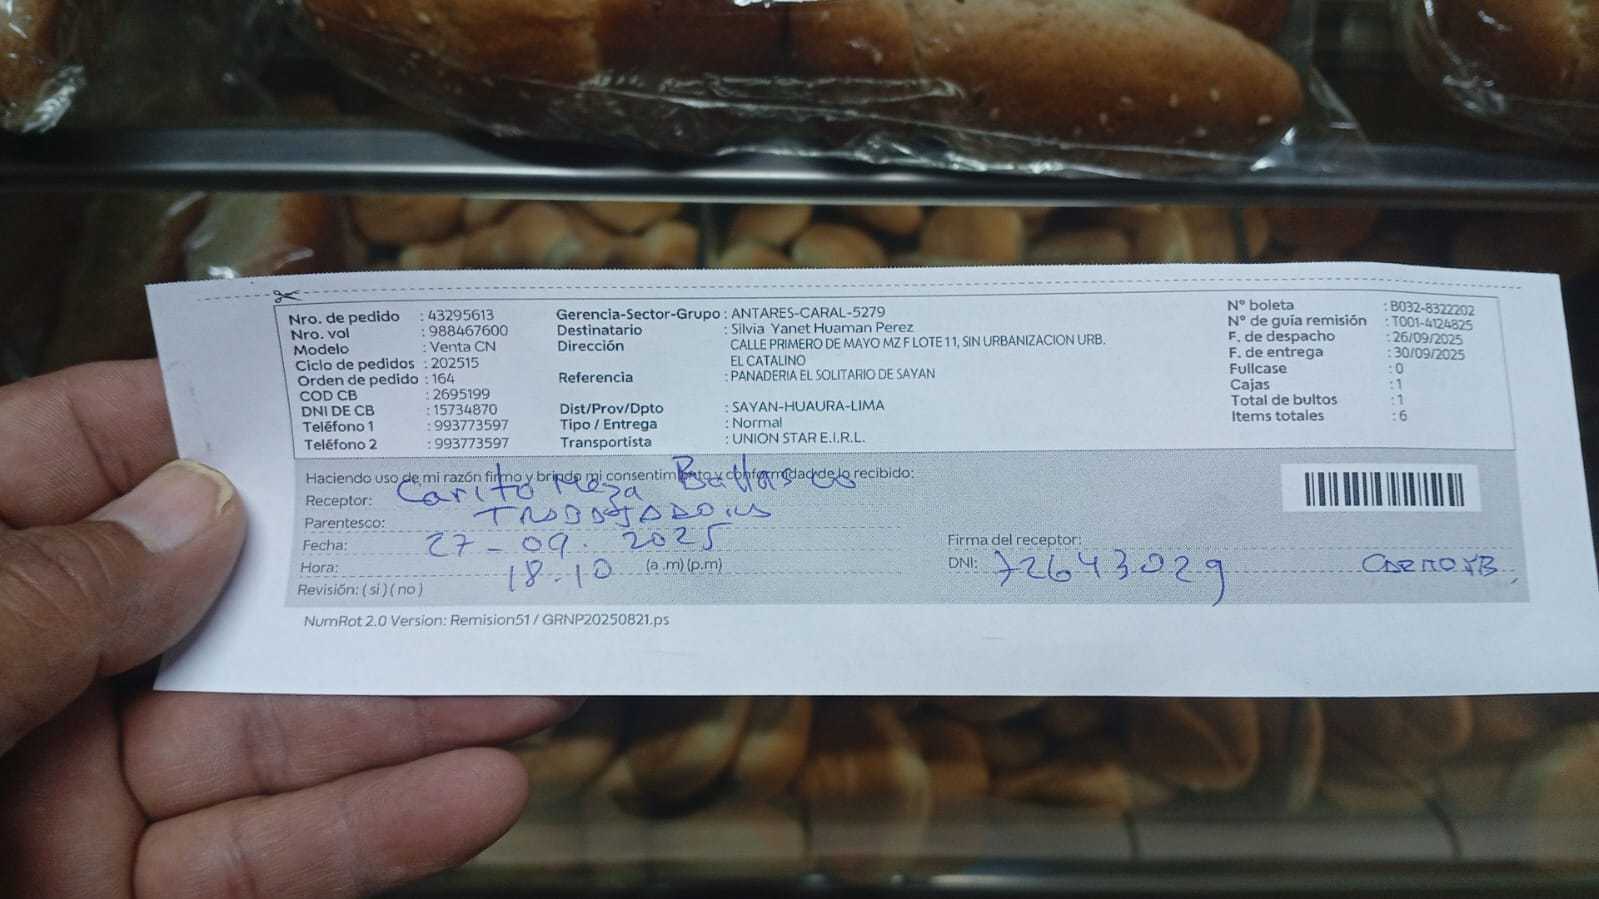 Nro. de pedido : 43295613
Nro. vol : 988467600
Modelo : Venta CN
Ciclo de pedidos : 202515
Orden de pedido : 164
COD CB : 2695199
DNI DE CB : 15734870
Teléfono 1 : 993773597
Teléfono 2 : 993773597
Gerencia-Sector-Grupo : ANTARES-CARAL-5279
Destinatario : Silvia Yanet Huaman Perez
Dirección : CALLE PRIMERO DE MAYO MZ F LOTE 11, SIN URBANIZACION URB.
EL CATALINO
Referencia : PANADERIA EL SOLITARIO DE SAYAN
Dist/Prov/Dpto : SAYAN-HUAURA-LIMA
Tipo / Entrega : Normal
Transportista : UNION STAR E.I.R.L.
N° boleta : B032-8322202
N° de guía remisión : T001-4124825
F. de despacho : 26/09/2025
F. de entrega : 30/09/2025
Fullcase : 0
Cajas : 1
Total de bultos : 1
Items totales : 6
Haciendo uso de mi razón firmo y brindo mi consentimiento y conformidad de lo recibido:
Receptor: Carito Meza
Parentesco:
Fecha: 27-09-2025
Hora: 18.10 (a .m) (p.m)
Revisión: ( si ) ( no )
Firma del receptor:
DNI: 72643029
NumRot 2.0 Version: Remision51 / GRNP20250821.ps